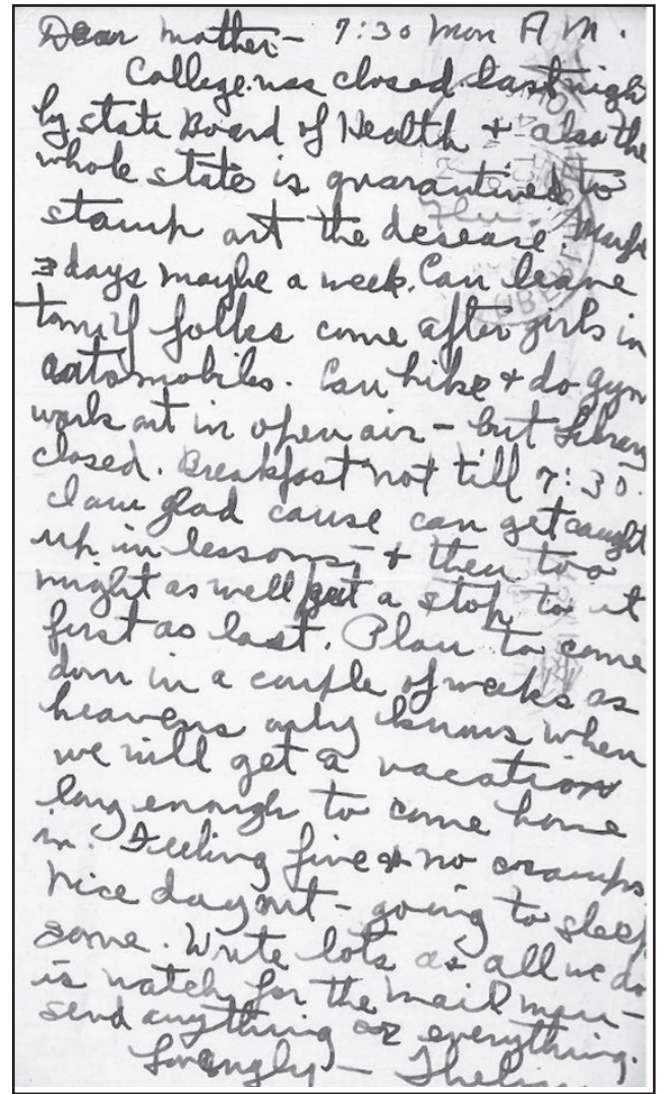 Dear Mother - 7:30 Mon A M.
College was closed last nigh
by state Board of Health + also the
whole state is quarantined to
stamp out the desease. Flu.
3 days maybe a week. Can leave
town if folks come after girls in
automobiles. Can hike + do gym
work out in open air - but Library
closed. Breakfast not till 7:30.
I am glad cause can get caught
up in lessons, + then too
might as well put a stop to it
first as last. Plan to come
down in a couple of weeks as
heavens only knows when
we will get a vacation
long enough to come home
in. Feeling fine & no cramps
Nice day out - going to sleep
some. Write lots as all we do
is watch for the mail man -
send anything or everything.
Lovingly - Thelma